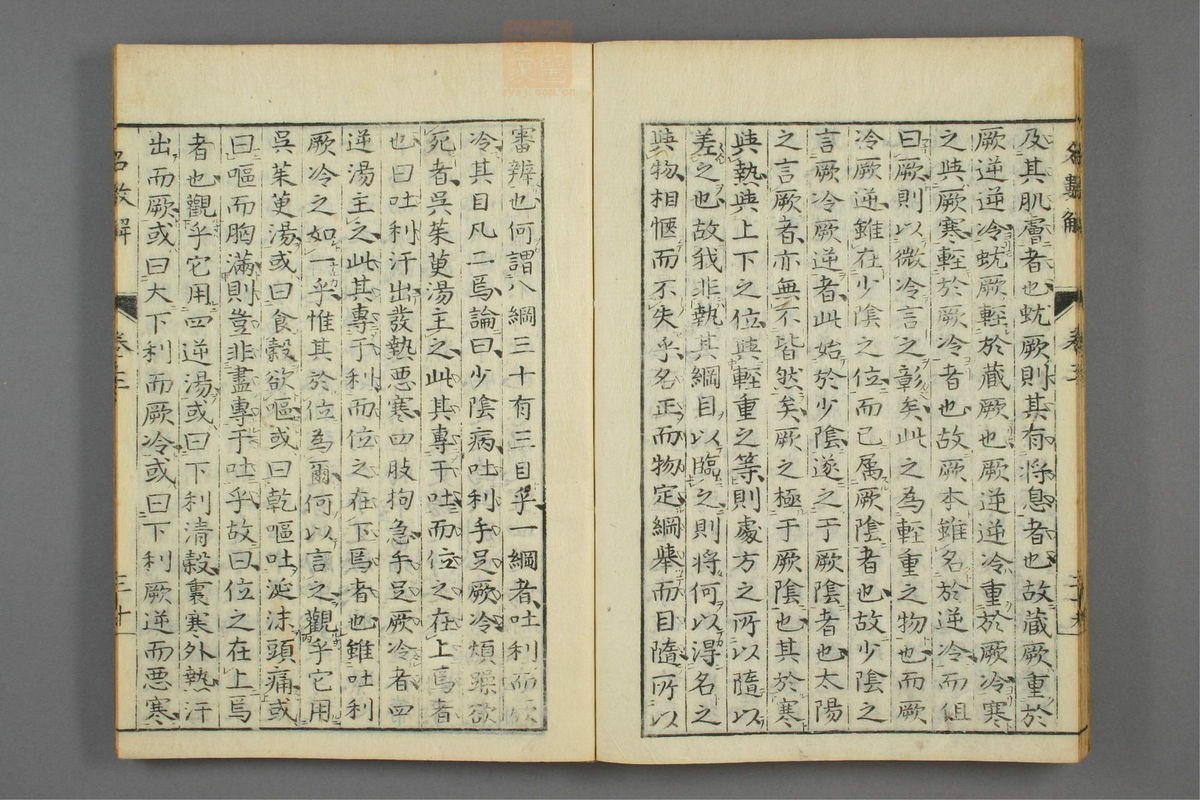 及其肌膚者也蚘厥則其有將息者也故藏厥重於
厥逆逆冷蚘厥輊於藏厥也厥逆逆冷重於厥冷寒
之與厥寒輊於厥冷者也故厥本雖名於逆冷而但
曰厥則以微冷言之彰矣此之為輊重之物也而厥
冷厥逆雖在少陰之位而已属厥陰者也故少陰之
言厥冷厥逆者此始於少陰遂之于厥陰者也太陽
之言厥者亦無不皆然矣厥之極于厥陰也其於寒
與熱與上下之位與輊重之等則處方之所以隨以
差之也故我非執其綱目以臨之則將何以得名之
與物相愜而不失乎名正而物定綱舉而目隨所以
名數解
卷三
審辨也何謂八綱三十有三目乎一綱者吐利而厥
冷其目凡二焉論曰少陰病吐利手足厥冷煩躁欲
死者吳茱萸湯主之此其專于吐而位之在上焉者
也曰吐利汗出發熱惡寒四肢拘急手足厥冷者四
逆湯主之此其專于利而位之在下焉者也雖吐利
厥冷之如一乎惟其於位為爾何以言之觀乎它用
吳茱萸湯或曰食穀欲嘔或曰乾嘔吐涎沫頭痛或
曰嘔而胸滿則豈非盡專于吐乎故曰位之在上焉
者也觀乎它用四逆湯或曰下利清穀裏寒外熱汗
出而厥或曰大下利而厥冷或曰下利厥逆而惡寒
名數解
卷三